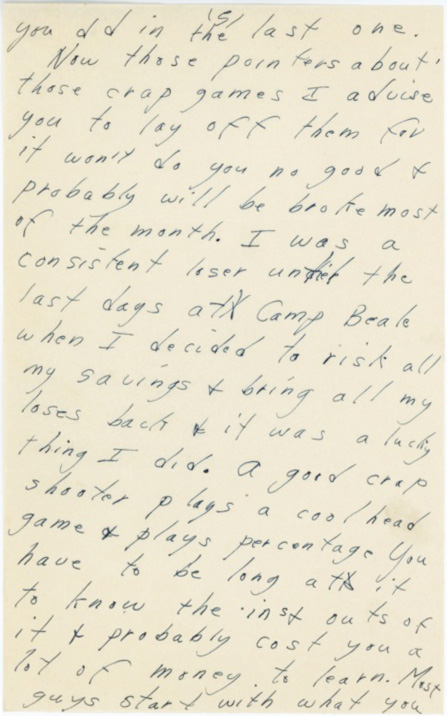 you dd in this last one.
Now those pointers about
those crap games I advise
you to lay off them for
it won't do you no good &
probably will be broke most
of the month. I was a
consistent loser until the
last days at Camp Beale
when I decided to risk all
my savings & bring all my
loses back & it was a lucky
thing I did. A good crap
shooter plays a cool head
game & plays percentage You
have to be long at it
to know the inst outs of
it & probably cost you a
lot of money to learn. Most
guys start with what you